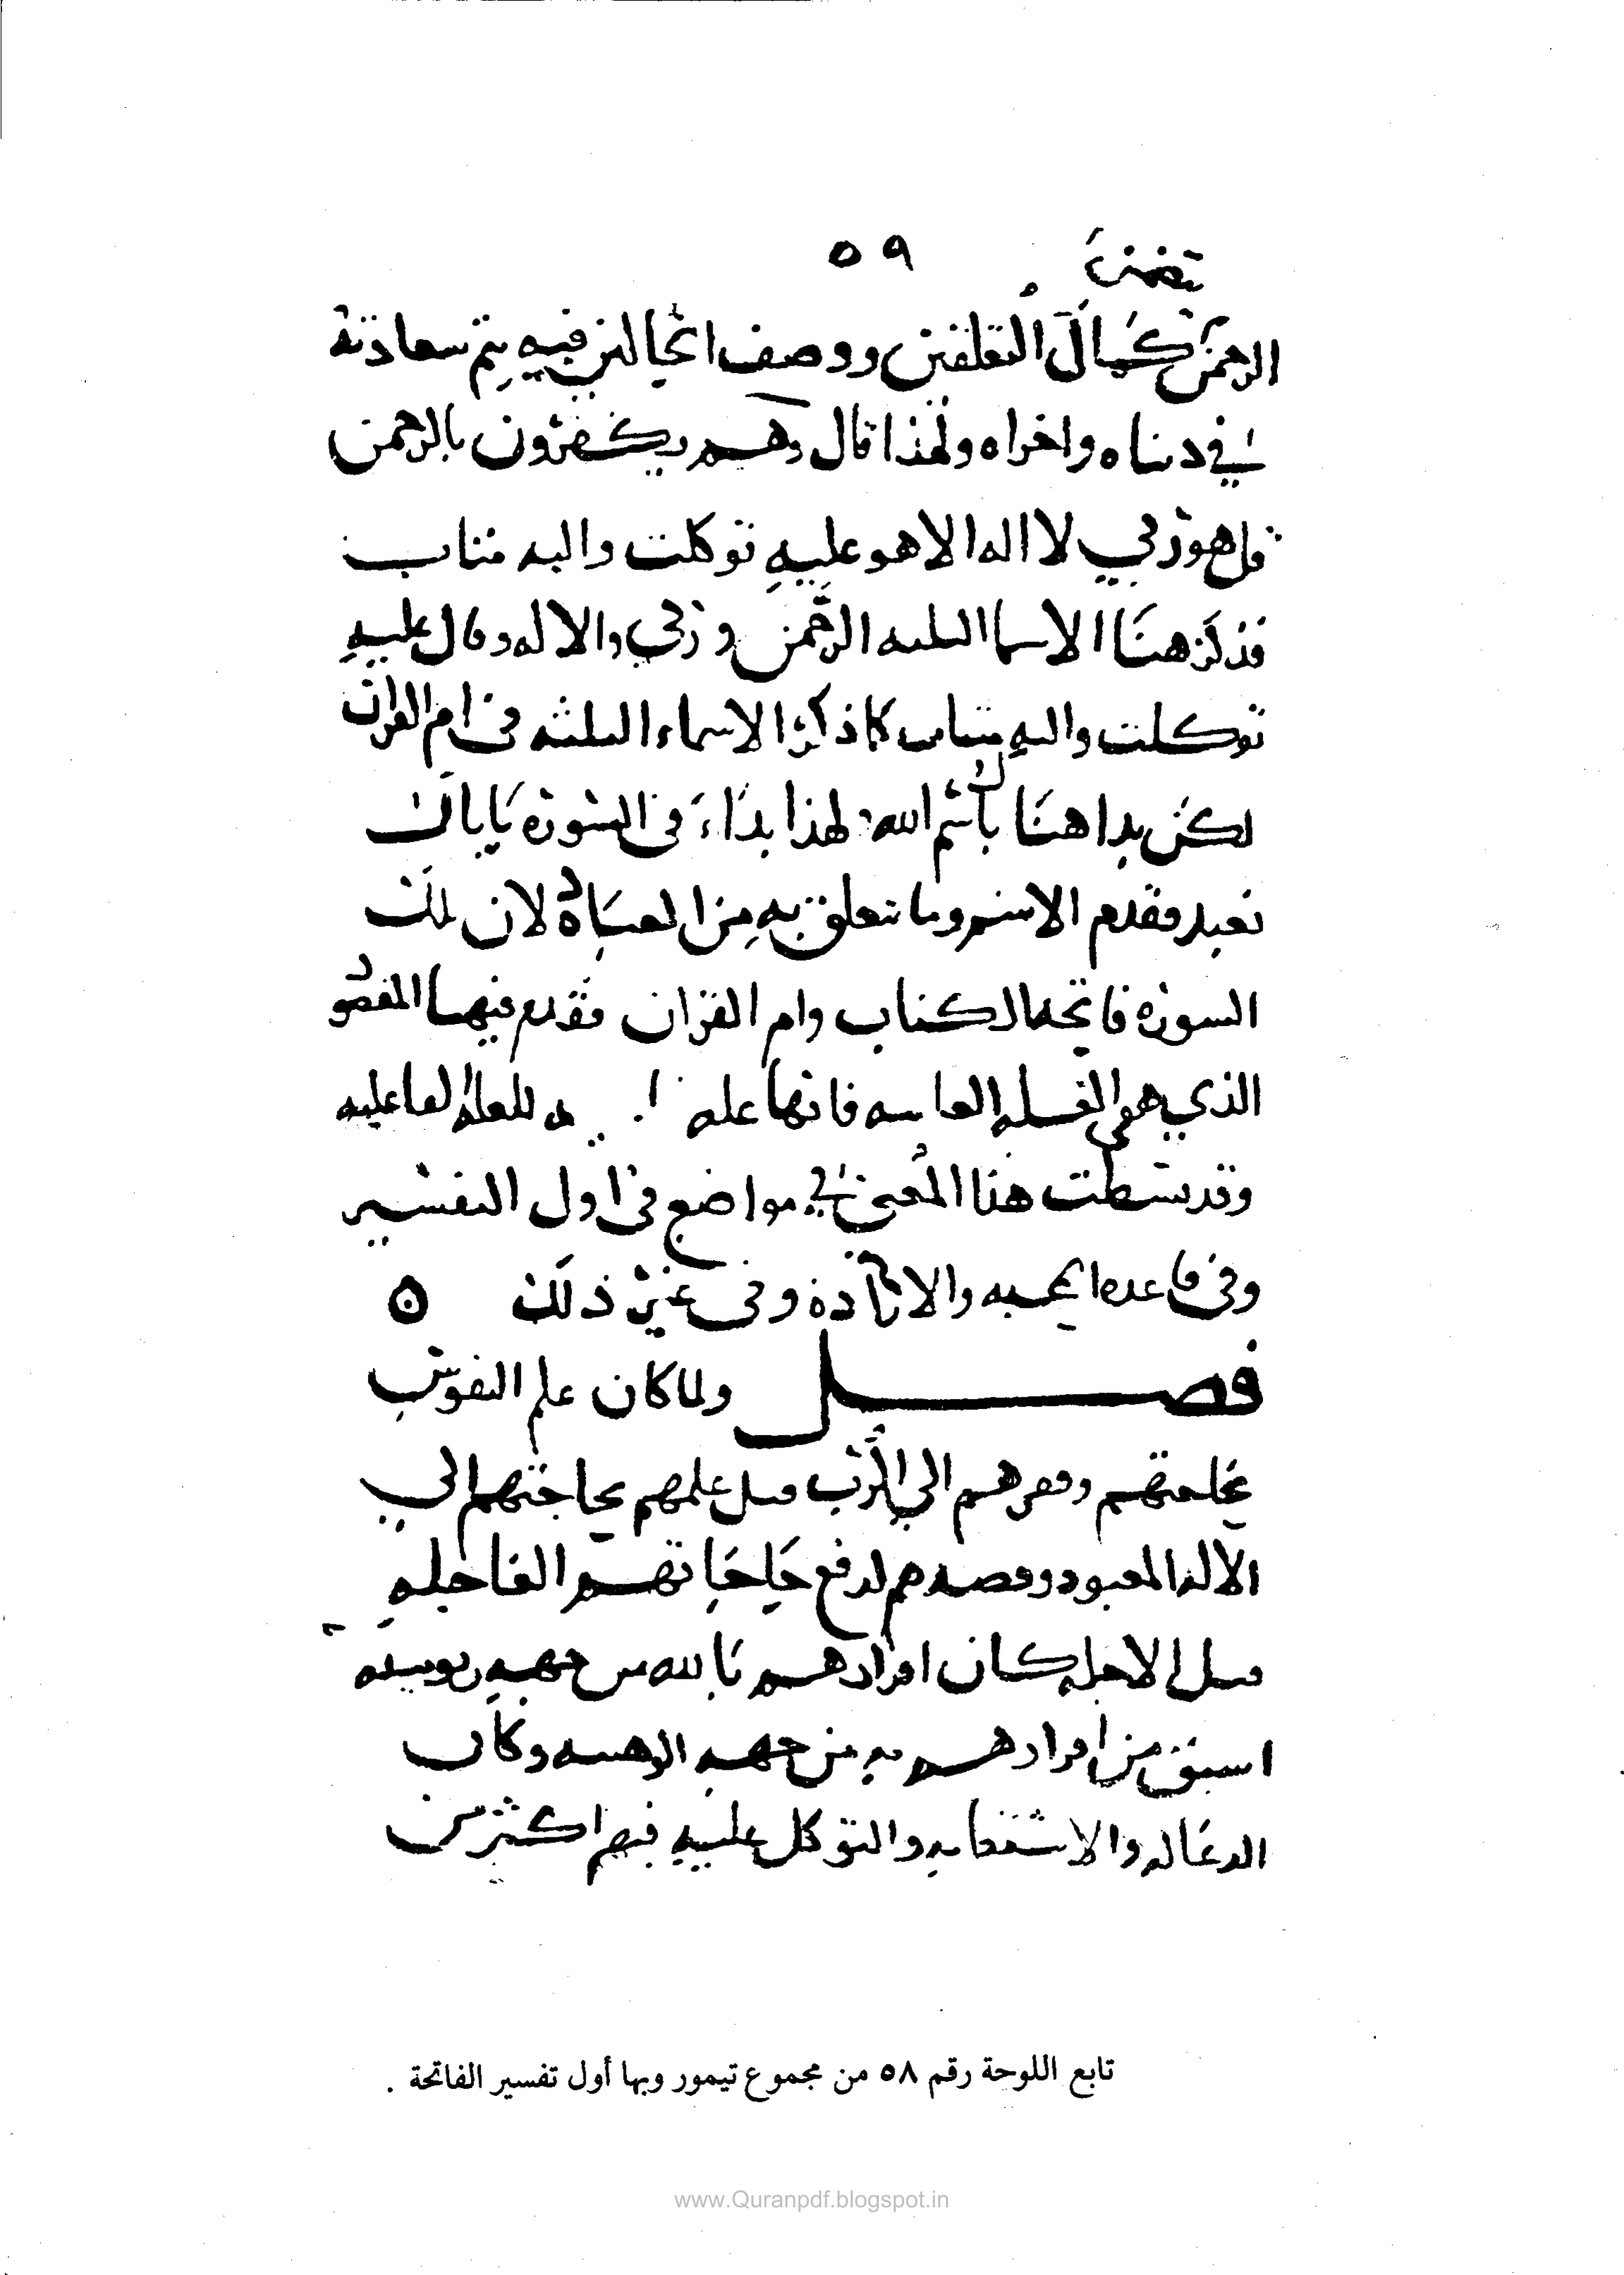 ٥٩
تضمن
الرحمن كمال التعلقين ووصف الحالين فيه يتم سعادته
في دنياه واخراه ولهذا قال وهم يكفرون بالرحمن
قل هو ربي لا اله الا هو عليه توكلت واليه متاب
فذكر هنا الاسما الثلثه الرحمن وربي والاله وقال عليه
توكلت واليه متاب كما ذكر الاسماء الثلثه في ام القران
لكن بدا هنا باسم الله ولهذا بداء في السوره باياك
نعبد فقدم الاسم وما يتعلق به من العبادة لان تلك
السوره فاتحه الكتاب وام القران فقدم فيها المقصود
الذي هو العله الغاييه فانها عله للعلة الفاعليه
وقد بسطت هذا المعنى في مواضع في اول التفسير
وفي قاعده المحبه والارادة وفي غير ذلك ه
فصل ولما كان علم النفوس
بحاجتهم وفقرهم الي الرب قبل علمهم بحاجتهم الي
الاله المعبود وقصدهم لدفع حاجاتهم العاجله
قبل الاجله كان اقرارهم بالله من جهه ربوبيته
اسبق من اقرارهم به من جهه الوهيته وكان
الدعا له والاستعانه به والتوكل عليه فيهم اكثر من
تابع اللوحة رقم ٥٨ من مجموع تيمور وبها أول تفسير الفاتحة .
www.Quranpdf.blogspot.in